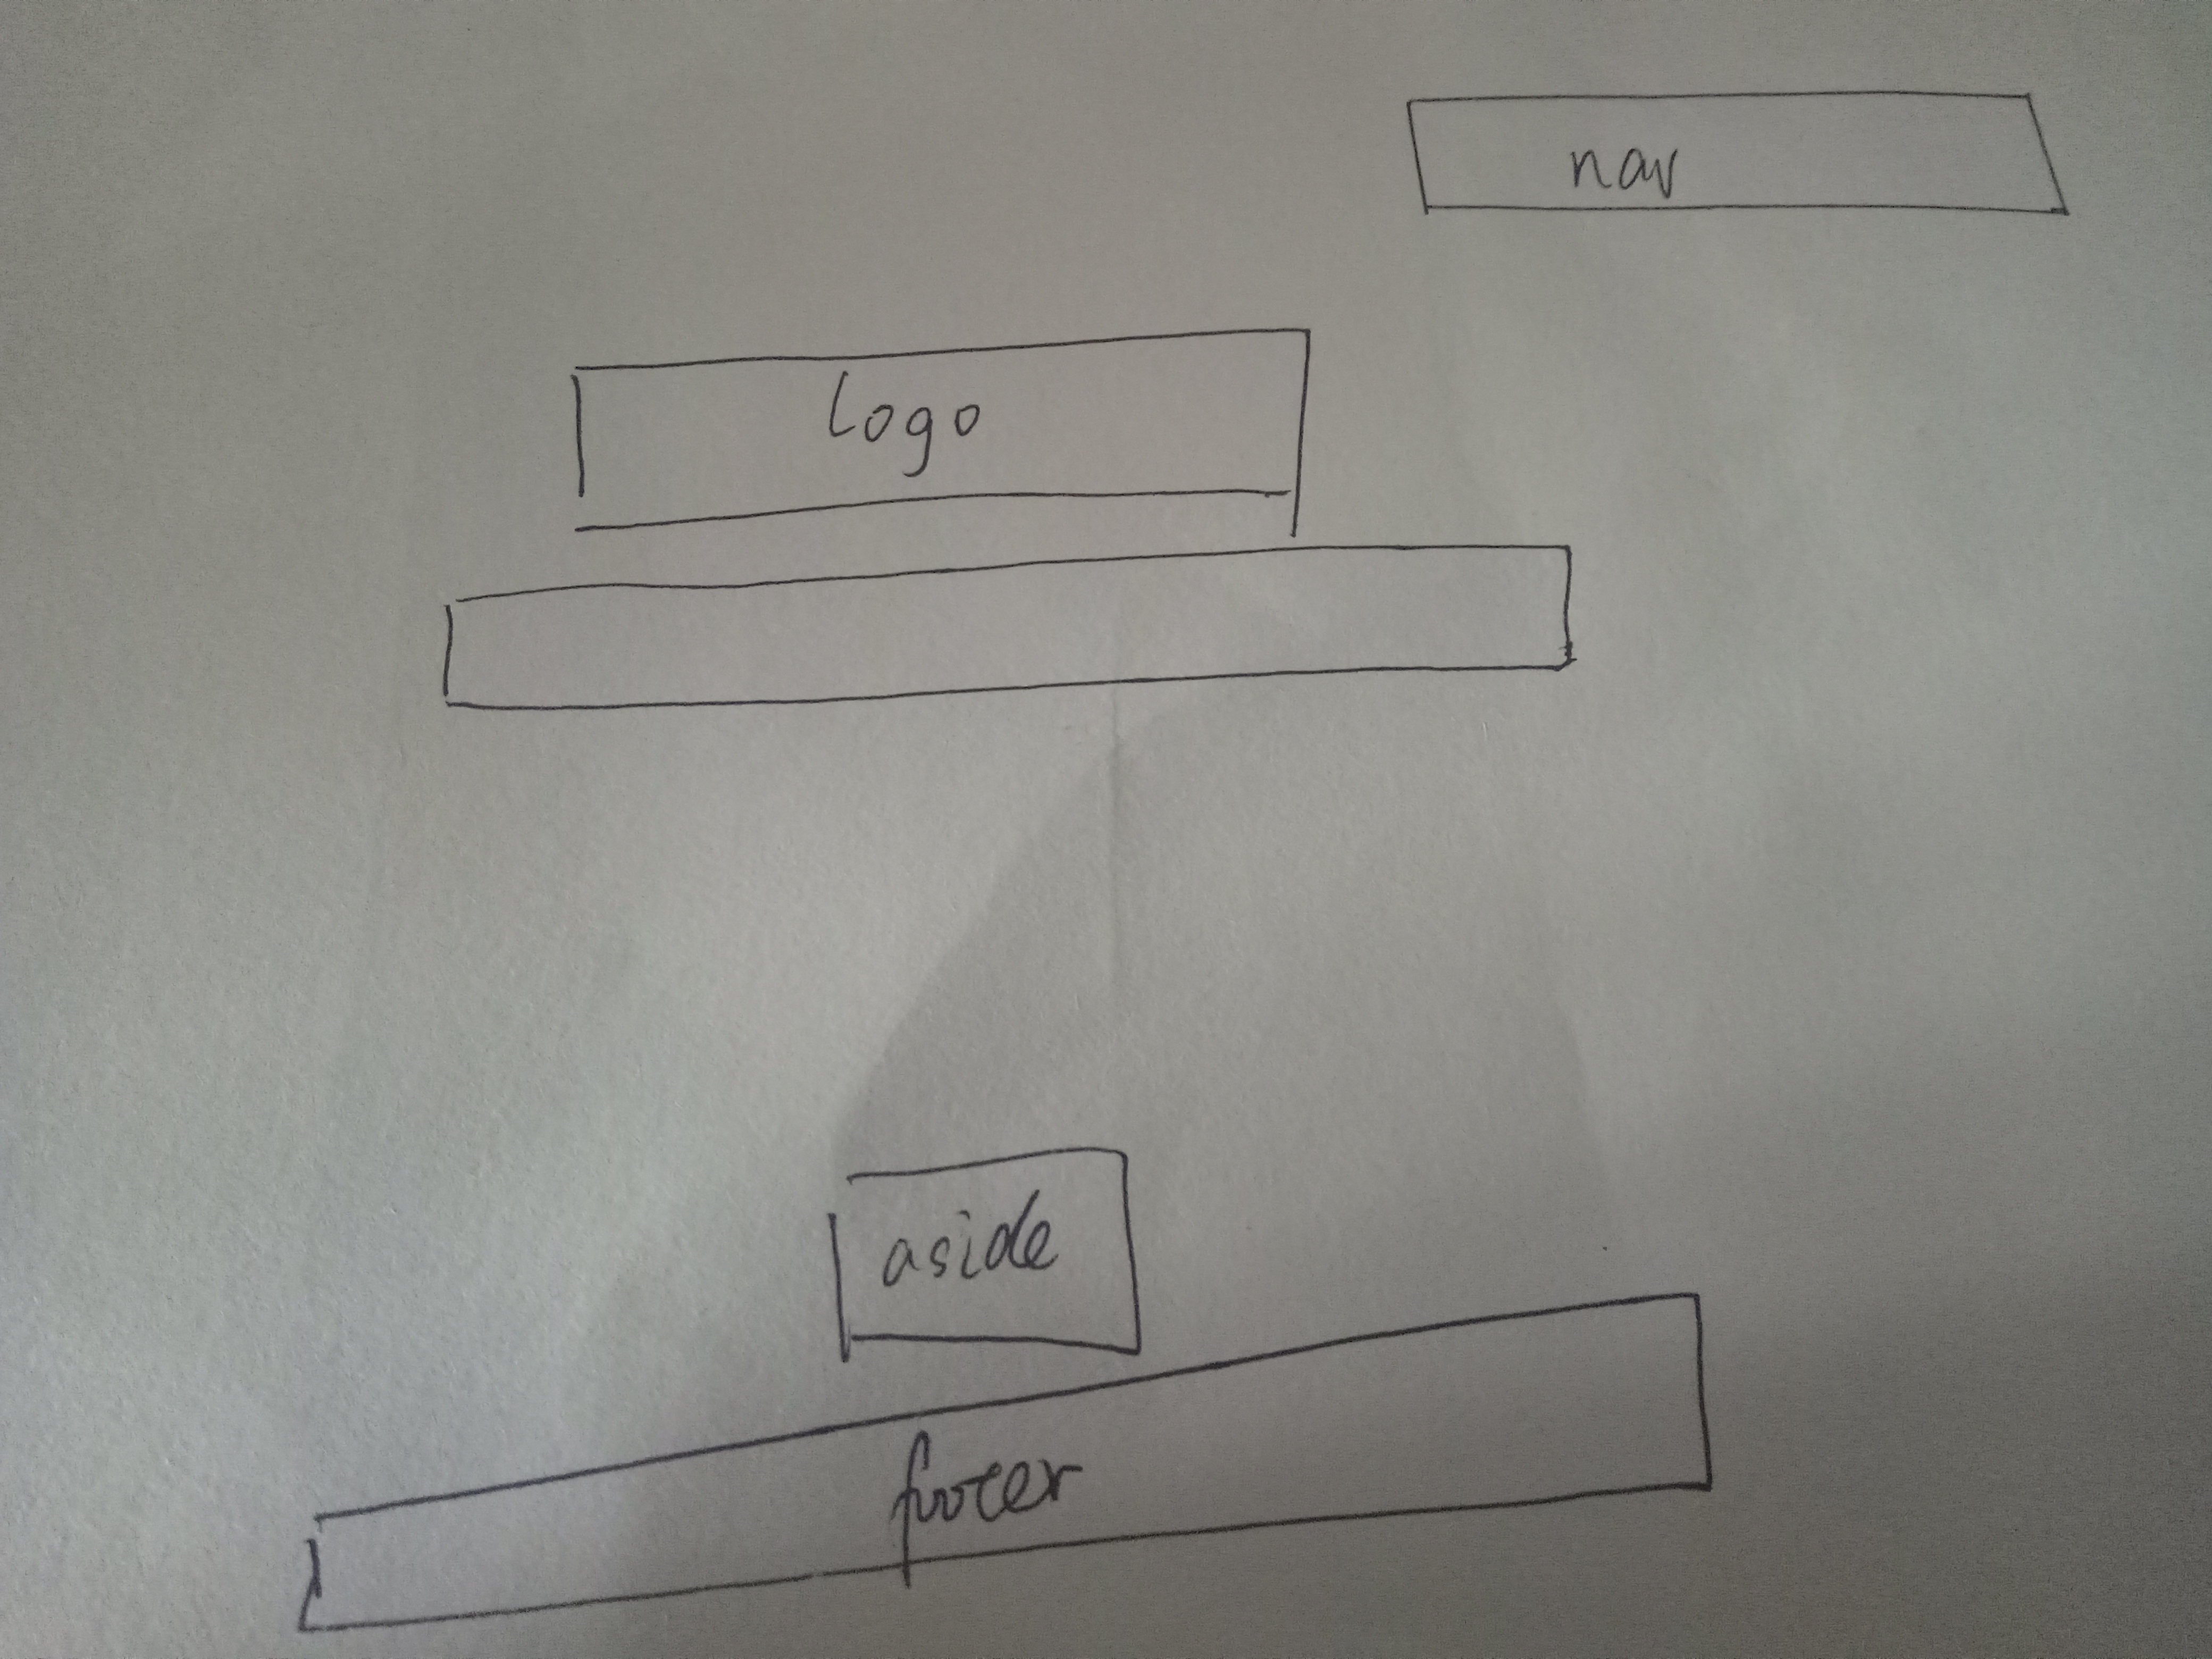 nav
logo
aside
footer